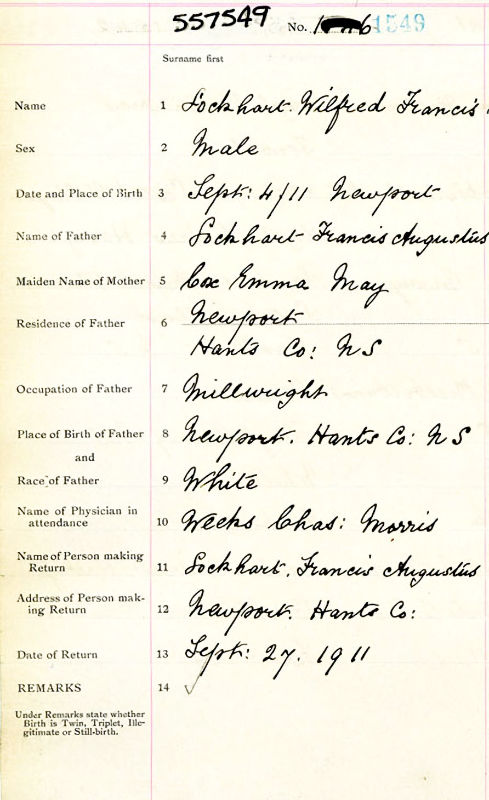 557549 No. 1549
Surname first
Name 1 Lockhart. Wilfred Francis
Sex 2 Male
Date and Place of Birth 3 Sept: 4/11 Newport
Name of Father 4 Lockhart Francis Augustus
Maiden Name of Mother 5 Cox Emma May
Residence of Father 6 Newport
Hants Co: N S
Occupation of Father 7 Millwright
Place of Birth of Father 8 Newport. Hants Co: N S
and
Race of Father 9 White
Name of Physician in
attendance 10 Weeks Chas: Morris
Name of Person making
Return 11 Lockhart, Francis Augustus
Address of Person mak-
ing Return 12 Newport. Hants Co:
Date of Return 13 Sept: 27. 1911
REMARKS 14 ✓
Under Remarks state whether
Birth is Twin, Triplet, Ille-
gitimate or Still-birth.